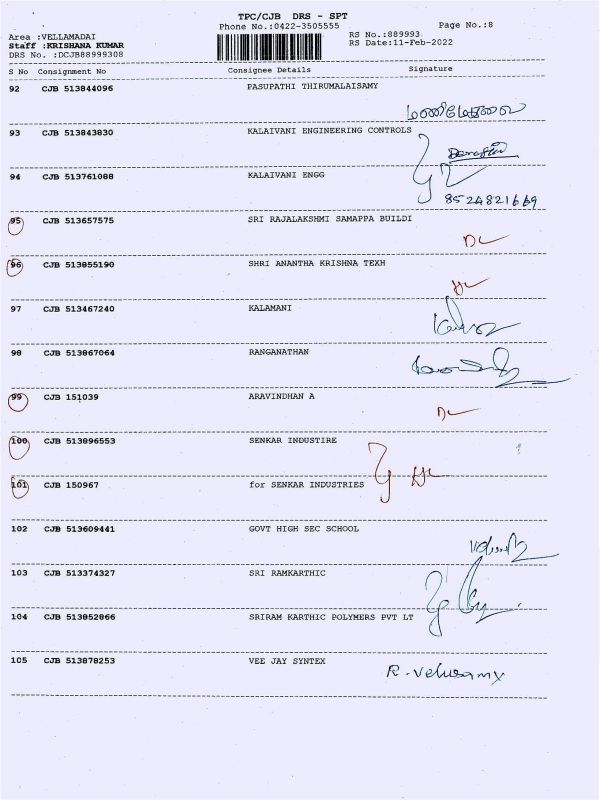 TPC/CJB DRS - SPT
Phone No.:0422-3505555 Page No.:8
Area :VELLAMADAI RS No.:889993
Staff :KRISHANA KUMAR RS Date:11-Feb-2022
DRS No. :DCJB88999308
S No Consignment No Consignee Details Signature
92 CJB 513844096 PASUPATHI THIRUMALAISAMY
93 CJB 513843830 KALAIVANI ENGINEERING CONTROLS
94 CJB 513761088 KALAIVANI ENGG
8524821669
95 CJB 513657575 SRI RAJALAKSHMI SAMAPPA BUILDI
DL
96 CJB 513855190 SHRI ANANTHA KRISHNA TEXH
97 CJB 513467240 KALAMANI
98 CJB 513867064 RANGANATHAN
99 CJB 151039 ARAVINDHAN A
DL
100 CJB 513896553 SENKAR INDUSTIRE
101 CJB 150967 for SENKAR INDUSTRIES
102 CJB 513609441 GOVT HIGH SEC SCHOOL
103 CJB 513374327 SRI RAMKARTHIC
104 CJB 513852866 SRIRAM KARTHIC POLYMERS PVT LT
105 CJB 513878253 VEE JAY SYNTEX
R. Velusamy